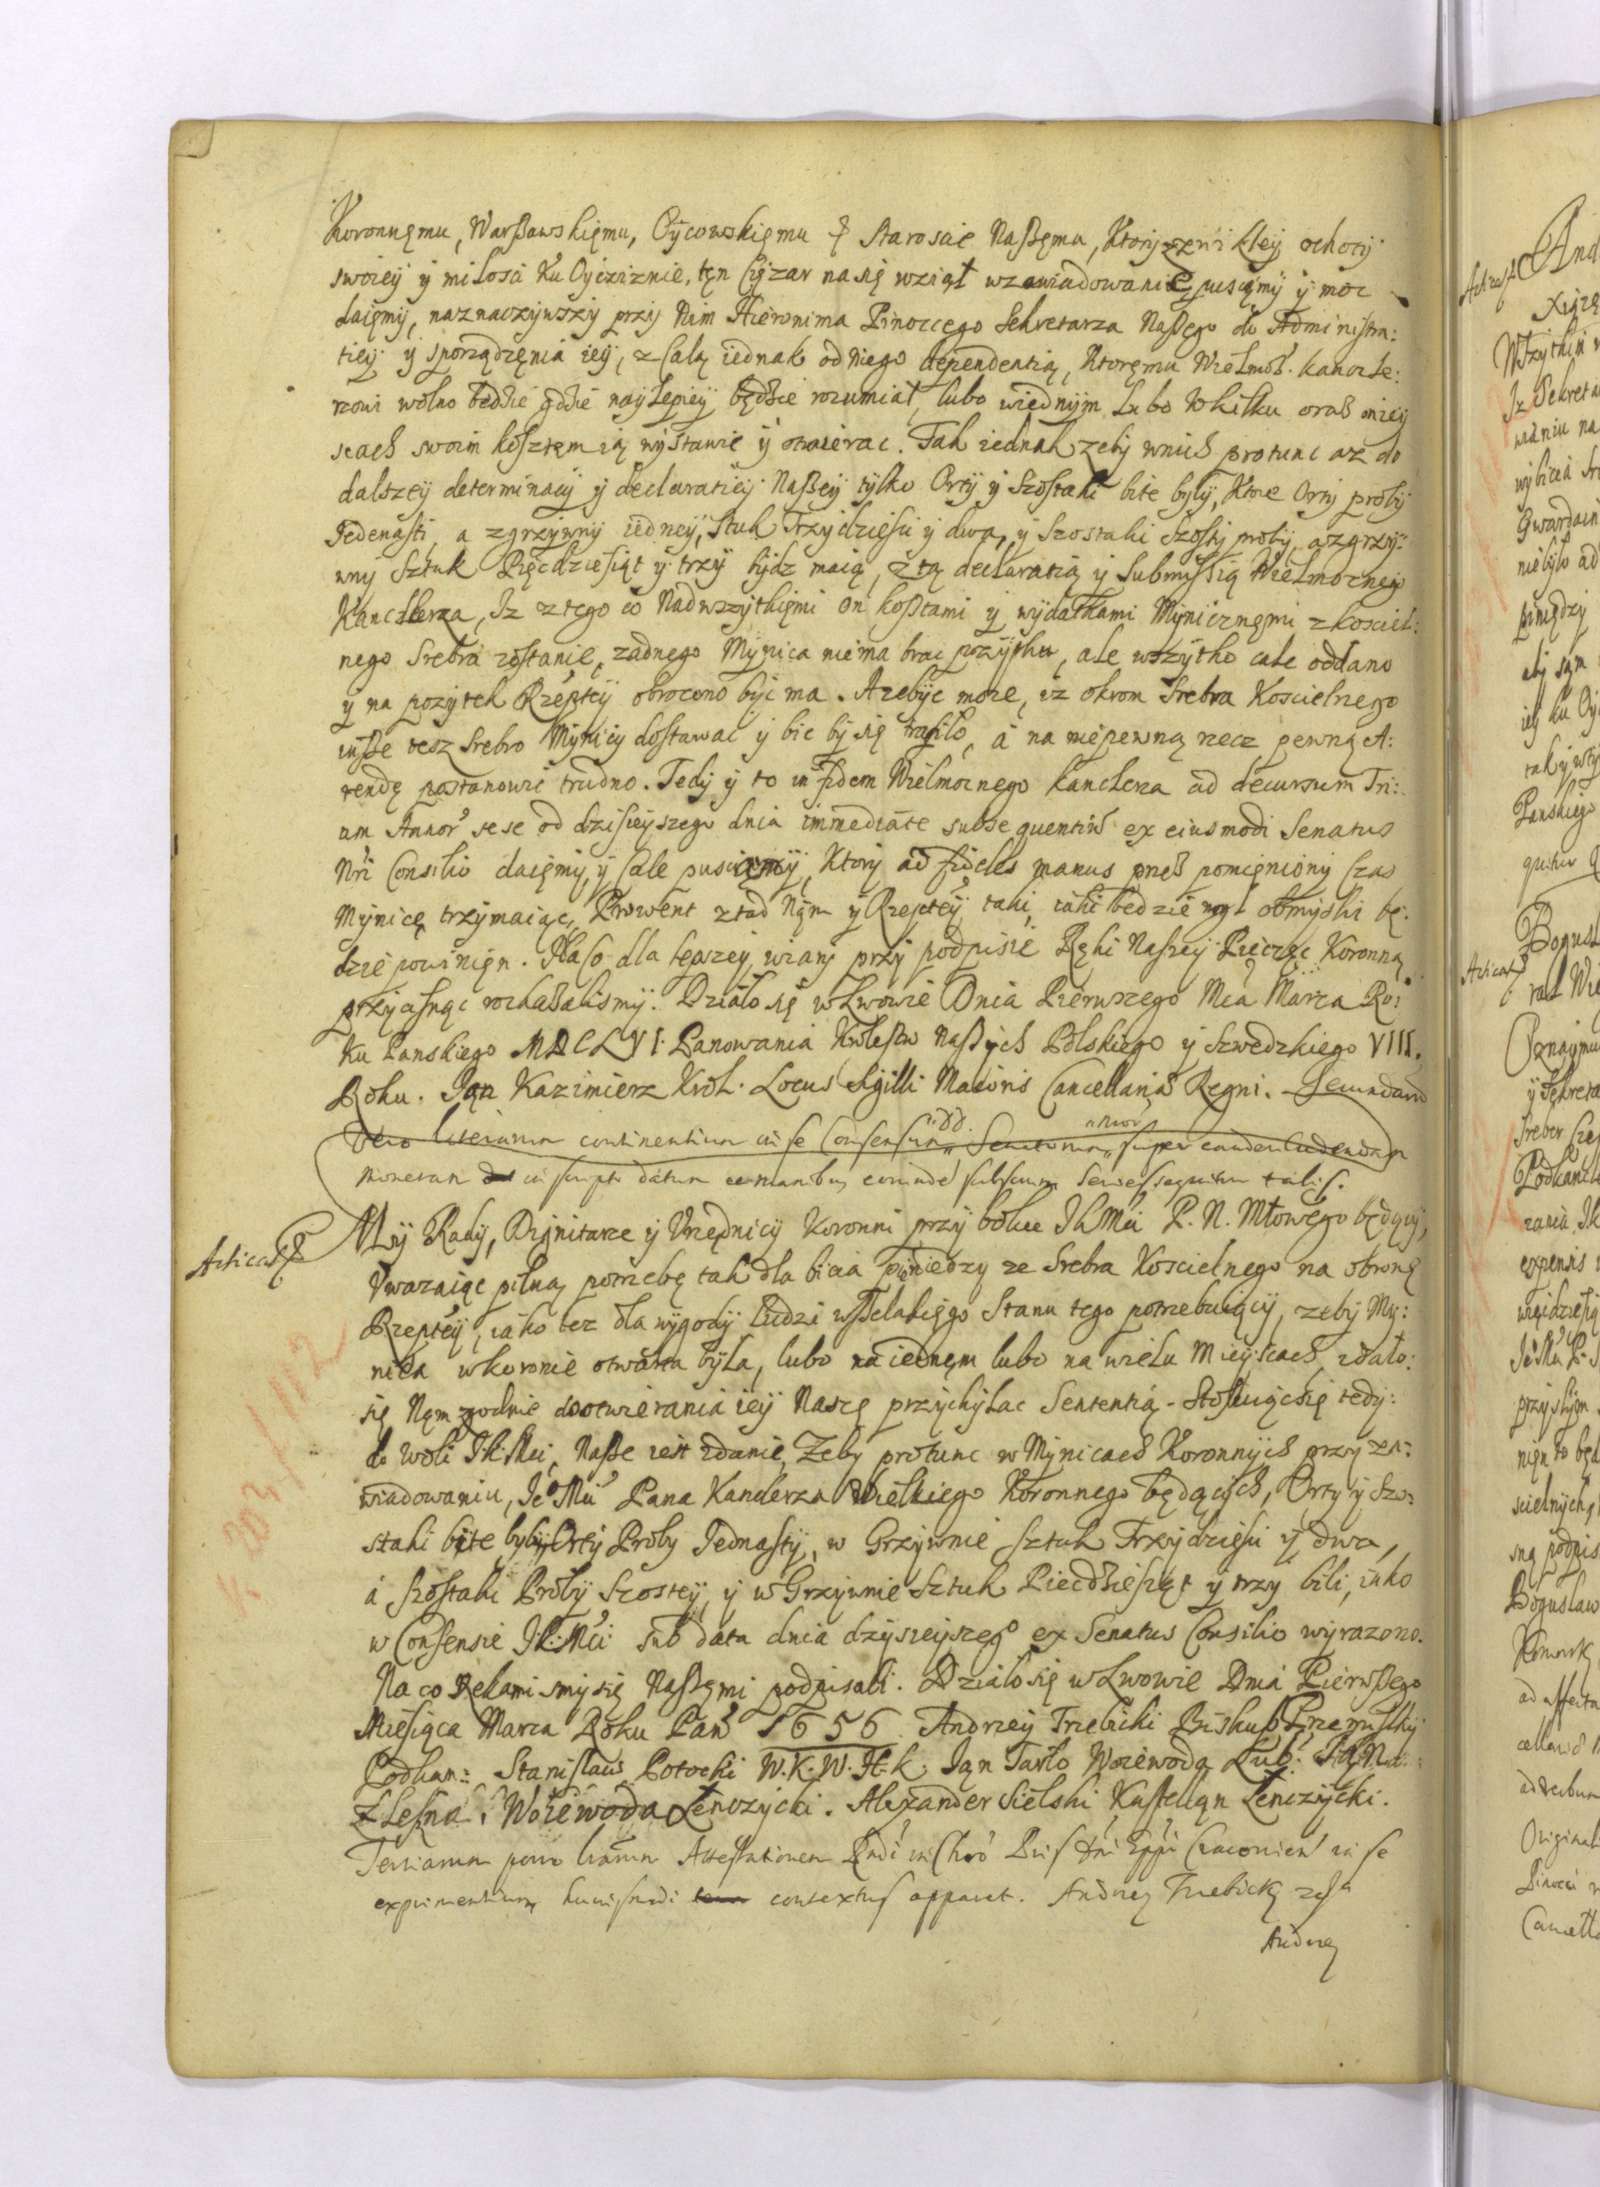 Koronnęmu, Warßawskięmu, Oycowskięmu & Staroscie Naßęmu, Ktory ochoty
swoiey y milosci Ku Oyczizniе, tęn Ciężar na się wziął w zawiadowanie pusciemy y moc
daięmy, naznaczywszy przy Nim Hieronima Pinoccego Sekretarza Naßego do Administra:
tiey y sporządzęnia iey, z Całą iednak od niego dependentią, Ktoręmu Wielmoż. Kancle:
rzowi wolno będzie gdzie naylepiey będzie rozumiał, lubo wiednym lubo w kilku oraz miey
scach swoim kosztęm ią wystawic y otwierac. Tak iednak zeby wnich protunc az do
dalszey determinacij y declaratiey Naßey tylko Orty y Szostaki bite byly, Ktore Orty proby
Jedenasti, a z grzywny iedney, Stuk Trzydziesci y dwa, y Szostaki Szosty proby, a z grzy:
wny Sztuk Pięcdziesiąt y trzy bydz maią, z tą declaratią y Submissią Wielmoznego
Kanclerza, Iz z tego co Nadwszytkięmi on kosztami y wydatkami Mynicznęmi z koscił:
nego Srebra zostanie, zadnego Mynica niema brac pozytku, ale wszytko cale oddano
y na pozytek Rzeptey obrocono byc ma. A zebyc moze, iz okrom Srebra Koscielnego
insße tesz Srebro Mynicy dostawac y bic by się trafilo, a na niepewną rzecz pewną A:
rendę postanowic trudno. Tedy y to in fidem Wielmoznego Kanclerza ad decursum Tri:
um Annor̃ sese od dzisieyszego dnia immediate subsequentiũ ex eiusmodi Senatus
Nr̃i Consilio daięmy y Cale pusciemy, Ktory ad fideles manus przeß pomięniony Czas
Mynicę trzymaiąc, Prowent ztad Nąm y Rzeptey taki, iaki będzie mogł obmyslic bę:
dzie powinięn. Na co dla lepszey wiary przy podpisie Ręki Naszey Pieczęc Koronną
przycisnąc rozkazalismy. Działo się w Lwowie Dnia Pierwszego Mca Marca Ro:
Ku Panskiego MDCLVI. Panowania Krolestw Naßych Polskiego y Szwedzkiego VIII.
Roku. Jąn Kazimierz Krol. Locus Sigilli Maioris Cancellariæ Regni. Secundarũ
Vero literarum continentium in se Consensum Senatorum super eandem cudendam
monetam in scripto datum ac manibus eorundẽ subscriptum series sequitur talis.
Articatᵗ
My Rady, Dignitarze y Urzędnicy Koronni przy boku I K Mci P. N. Młowego będący,
Uwazaiąc pilną potrzebę tak dla bicia pięniedzy ze Srebra Koscielnego na obronę
Rzeptey, iako tez dla wygody Ludzi wßelakięgo Stanu tego potrzebuiący, zeby My:
nica w koronie otwarta była, lubo na iednęm lubo na wielu Mieyscach, zdało:
się Nąm zgodnie do otwierania iey Naszę przychylac Sententią. Stosuiąc się tedy:
do woli I.K.Mci, Naße iest zdanie, Zeby protunc w Mynicach Koronnych przy za:
wiadowaniu, Je⁰ Mci Pana Kanclerza Wielkiego Koronnego będących, Orty y Szo:
staki bite były, Orty Proby Jednasty, w Grzywnie Sztuk Trzydziesci y dwa,
a szostaki Proby Szostey, y w Grzywnie Sztuk Piecdziesiąt y trzy bili, iako
w Consensie I.K.Mci sub data dnia dzysieyszego ex Senatus Consilio wyrazono.
Na co Rękami smy się Naßęmi podpisali. Działo się w Lwowie Dnia Pierwßego
Miesiąca Marca Roku Pań 1656. Andrzey Trzebicki Biskub Przemysky
Podkan: Stanislaus Potocki W.K.W.H.K. Jąn Tarło Woiewoda Lub:
Z Leszna Woiewoda Lenczycki. Alexander Sielski Kasztelląn Lenczycki.
Tertiarum porro Attestationem Epp̃i Cracovieñ in se
exprimentium huiusmodi contextus apparet. Andrzey Trzebicky
Andrzey
K 203/112